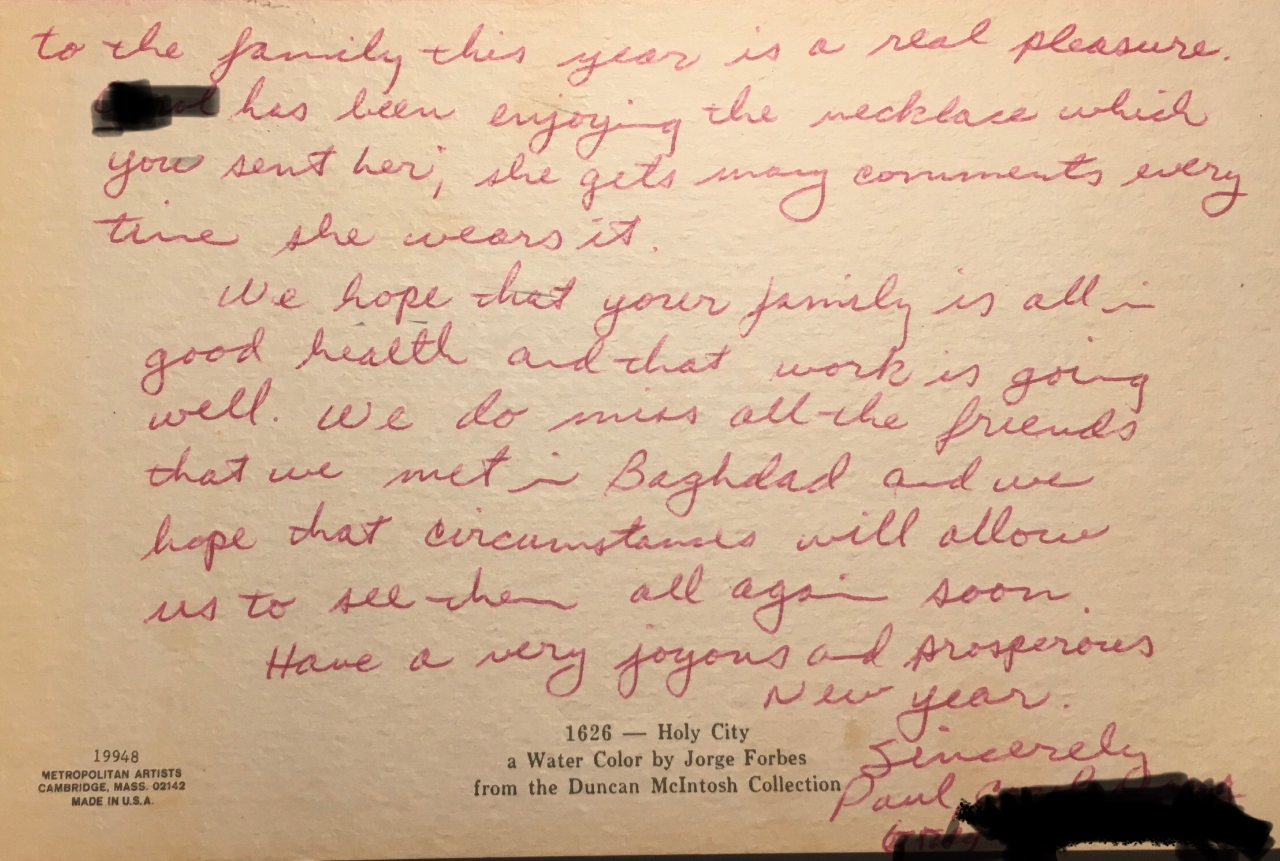 to the family this year is a real pleasure.
has been enjoying the necklace which
you sent her, she gets many comments every
time she wears it.
We hope that your family is all in
good health and that work is going
well. We do miss all the friends
that we met in Baghdad and we
hope that circumstances will allow
us to see them all again soon.
Have a very joyous and prosperous
New year.
Sincerely
Paul
1626 — Holy City
a Water Color by Jorge Forbes
from the Duncan McIntosh Collection
19948
METROPOLITAN ARTISTS
CAMBRIDGE, MASS. 02142
MADE IN U.S.A.